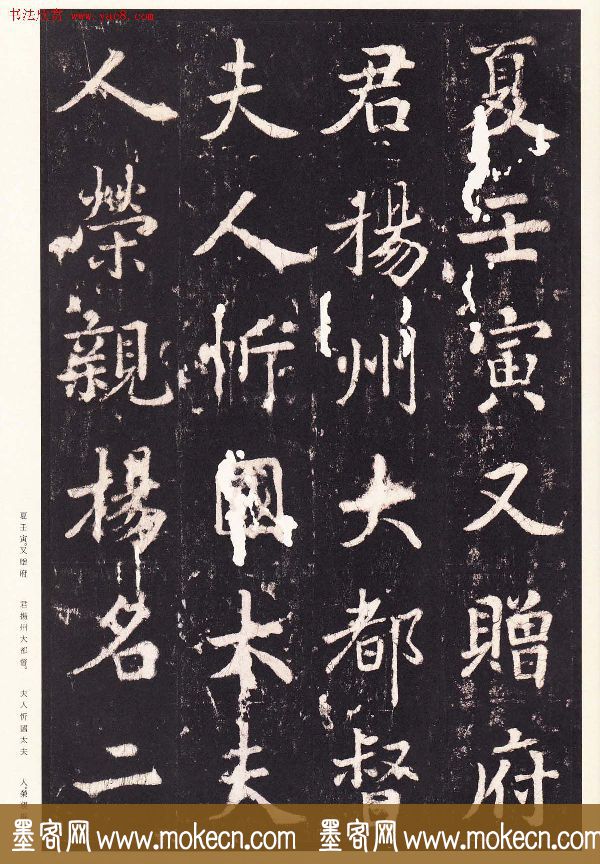 书法欣赏 www.yac8.com
夏壬寅又贈府
君揚州大都督
夫人忻國太夫
人榮親揚名二
夏壬寅。又贈府 君揚州大都督。 夫人忻國太夫 人。榮
墨客网 www.mokecn.com 墨客网 www.mokecn.com